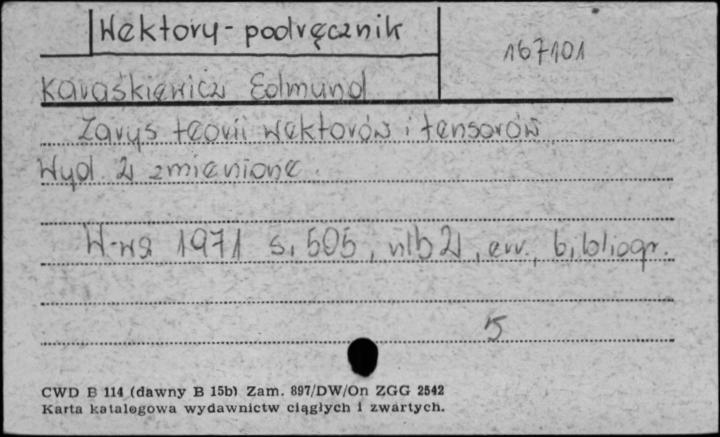 Wektory - podręcznik
167101
Karaśkiewicz Edmund
Zarys teorii wektorów i tensorów
Wyd. 2 zmienione
W-wa 1971 s. 505, nlb 2, err., bibliogr.
5
CWD B 114 (dawny B 15b) Zam. 897/DW/On ZGG 2542
Karta katalogowa wydawnictw ciągłych i zwartych.